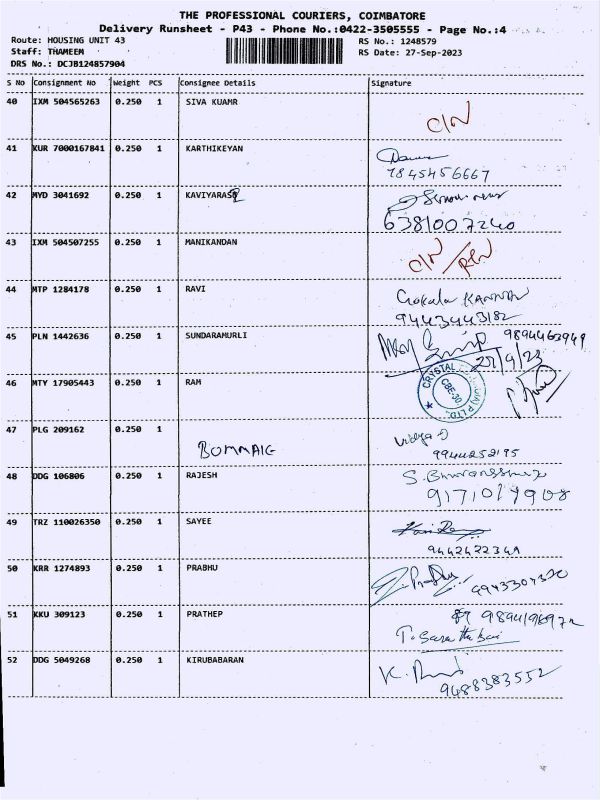 THE PROFESSIONAL COURIERS, COIMBATORE
Delivery Runsheet - P43 - Phone No.:0422-3505555 - Page No.:4
Route: HOUSING UNIT 43
RS No.: 1248579
Staff: THAMEEM
RS Date: 27-Sep-2023
DRS No.: DCJB124857904
S No Consignment No Weight PCS Consignee Details Signature
40 IXM 504565263 0.250 1 SIVA KUAMR
C/N
41 KUR 7000167841 0.250 1 KARTHIKEYAN
7845456667
42 MYD 3041692 0.250 1 KAVIYARAS
6381007240
43 IXM 504507255 0.250 1 MANIKANDAN
C/N
44 MTP 1284178 0.250 1 RAVI
Gokula KANNAN
9443443182
45 PLN 1442636 0.250 1 SUNDARAMURLI
27/9/23
46 MTY 17905443 0.250 1 RAM
CRYSTAL
CBE-30
47 PLG 209162 0.250 1
BOMMAIG
Vidya
9944252195
48 DDG 106806 0.250 1 RAJESH
49 TRZ 110026350 0.250 1 SAYEE
50 KRR 1274893 0.250 1 PRABHU
51 KKU 309123 0.250 1 PRATHEP
52 DDG 5049268 0.250 1 KIRUBABARAN
9488383552